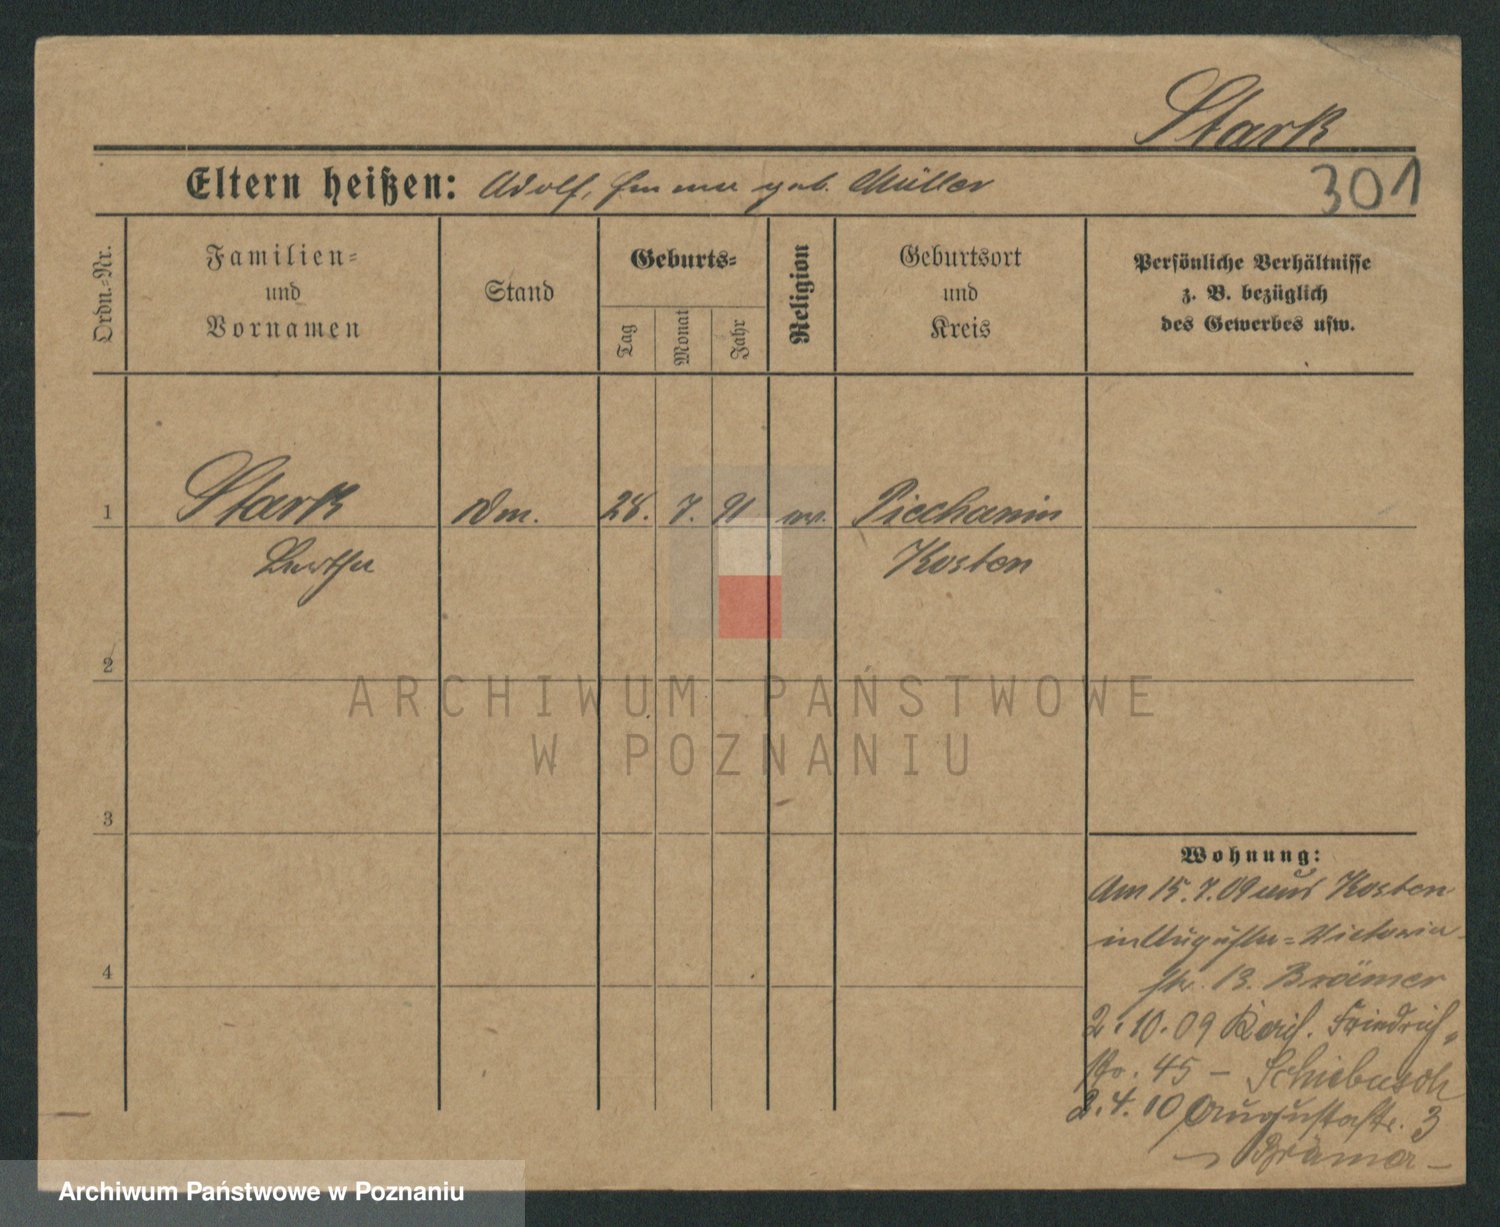 Stark
Eltern heißen: Adolf, Emma geb. Müller
301
Ordn.-Nr.
Familien-
und
Vornamen
Stand
Geburts-
Tag
Monat
Jahr
Religion
Geburtsort
und
Kreis
Persönliche Verhältnisse
z. B. bezüglich
des Gewerbes usw.
1 Stark 28. 7. 91 ev. Piechanin
Bertha Kosten
2
3
4
ARCHIWUM PAŃSTWOWE
W POZNANIU
Wohnung:
Am 15.7.09 aus Kosten
in Auguste-Victoria
str. 13. Brämer
2.10.09 Kais. Friedrich-
str. 45 – Schiebusch
2.4.10 Augustastr. 3
Brämer –
Archiwum Państwowe w Poznaniu